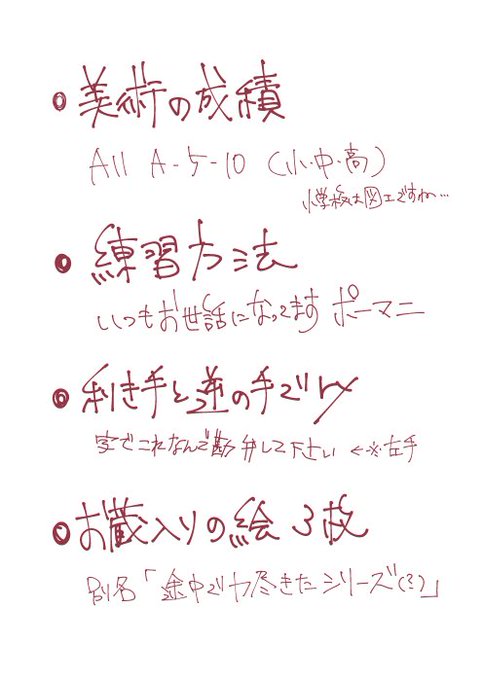 美術の成績
All A-5-10 (小・中・高)
小学校は図工ですね…
練習方法
いつもお世話になってます ポーマニ
利き手と逆の手で
字でこれなんで勘弁して下さい ←※左手
お蔵入りの絵 3枚
別名「途中で力尽きたシリーズ(?)」